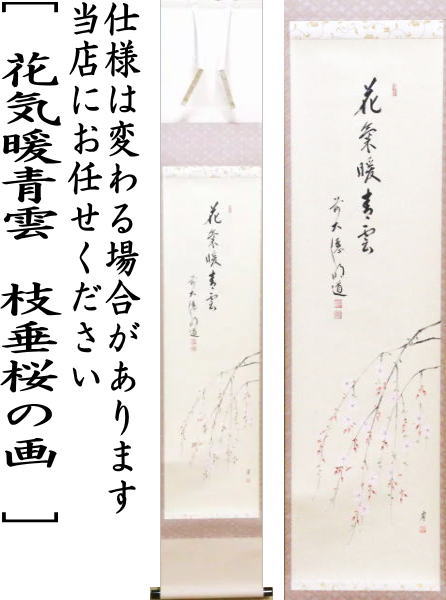 仕様は変わる場合があります
当店にお任せください
［ 花気暖青雲　枝垂桜の画 ］
花氣暖青雲
前大徳明道
花氣暖青雲
前大徳明道